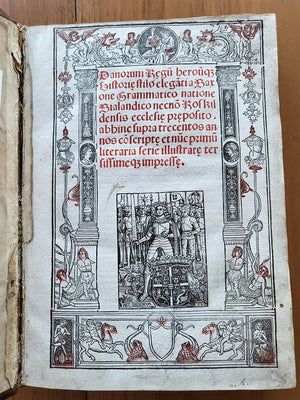 Danorum Regũ heroũqȝ
Historię stilo elegãti a Sax
one Grammatico natione
Sialandico necnõ Roskil
densis ecclesię pręposito,
abhinc supra trecentos an
nos cõscriptę et nũc primũ
literaria serie illustratę ter
sissimeqȝ impressę.